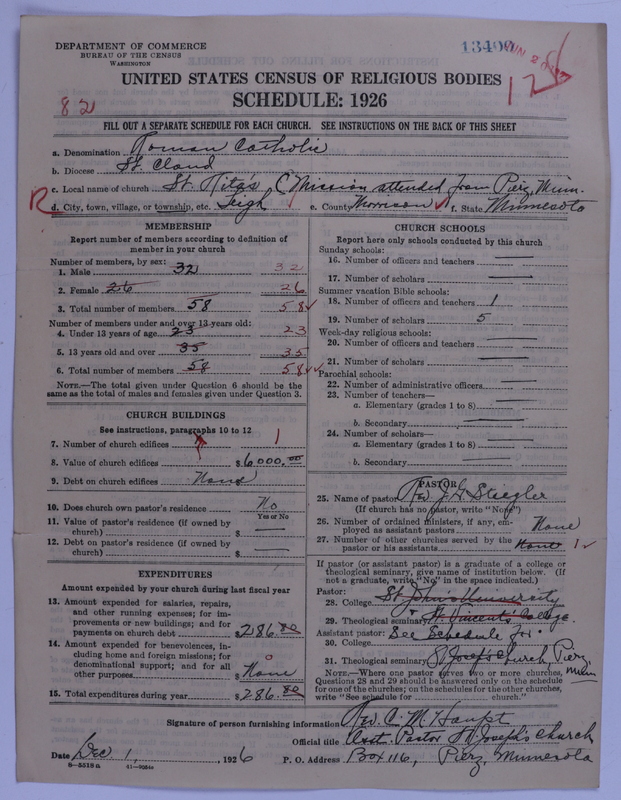 DEPARTMENT OF COMMERCE
BUREAU OF THE CENSUS
WASHINGTON
13400
JUN 20
128
UNITED STATES CENSUS OF RELIGIOUS BODIES
SCHEDULE: 1926
82
FILL OUT A SEPARATE SCHEDULE FOR EACH CHURCH. SEE INSTRUCTIONS ON THE BACK OF THIS SHEET
a. Denomination Roman Catholic
b. Diocese St. Cloud
c. Local name of church St. Rita's (Mission attended from Pierz, Minn.
R d. City, town, village, or township, etc. Leigh e. County Morrison f. State Minnesota
MEMBERSHIP
Report number of members according to definition of
member in your church
Number of members, by sex:
1. Male 32 32
2. Female 26 26
3. Total number of members 58 58
Number of members under and over 13 years old:
4. Under 13 years of age 23 23
5. 13 years old and over 35 35
6. Total number of members 58 58
NOTE.—The total given under Question 6 should be the
same as the total of males and females given under Question 3.
CHURCH BUILDINGS
See instructions, paragraphs 10 to 12
7. Number of church edifices 1
8. Value of church edifices $6000.00
9. Debt on church edifices None
10. Does church own pastor's residence No
Yes or No
11. Value of pastor's residence (if owned by
church) $
12. Debt on pastor's residence (if owned by
church) $
EXPENDITURES
Amount expended by your church during last fiscal year
13. Amount expended for salaries, repairs,
and other running expenses; for im-
provements or new buildings; and for
payments on church debt $286.80
14. Amount expended for benevolences, in-
cluding home and foreign missions; for
denominational support; and for all
other purposes $None 0
15. Total expenditures during year $286.80
CHURCH SCHOOLS
Report here only schools conducted by this church
Sunday schools:
16. Number of officers and teachers
17. Number of scholars
Summer vacation Bible schools:
18. Number of officers and teachers 1
19. Number of scholars 5
Week-day religious schools:
20. Number of officers and teachers
21. Number of scholars
Parochial schools:
22. Number of administrative officers
23. Number of teachers—
a. Elementary (grades 1 to 8)
b. Secondary
24. Number of scholars—
a. Elementary (grades 1 to 8)
b. Secondary
PASTOR
25. Name of pastor Rev. J. G. Staegler
(If church has no pastor, write "None")
26. Number of ordained ministers, if any, em-
ployed as assistant pastors None
27. Number of other churches served by the
pastor or his assistants None 1
If pastor (or assistant pastor) is a graduate of a college or
theological seminary, give name of institution below. (If
not a graduate, write "No" in the space indicated.)
Pastor:
28. College St. John's University
29. Theological seminary + St. Vincent's College.
Assistant pastor: See Schedule for
30. College
31. Theological seminary St. Joseph's Church, Pierz, Minn
NOTE.—Where one pastor serves two or more churches,
Questions 28 and 29 should be answered only on the schedule
for one of the churches; on the schedules for the other churches,
write "See schedule for church."
Signature of person furnishing information Rev. C. M. Haupt
Official title Asst. Pastor St. Joseph's Church
Date Dec 1, 1926 P. O. Address Box 116, Pierz, Minnesota